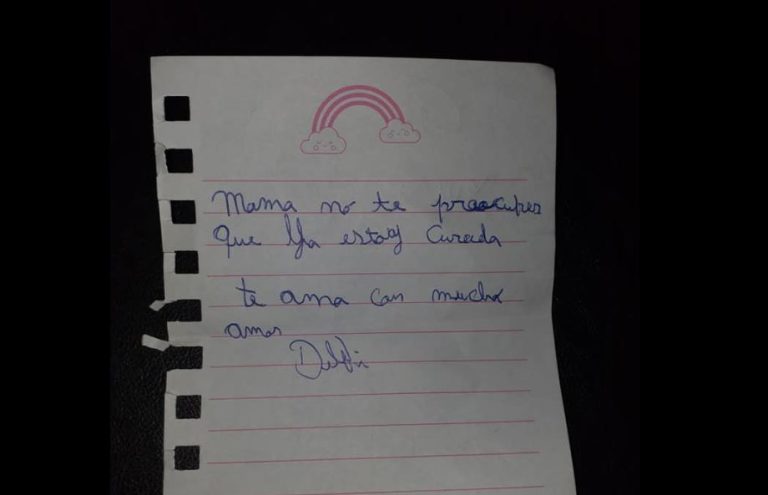 Mama no te preocupes
que ya estoy curada
te ama con mucho
amor
Delfi